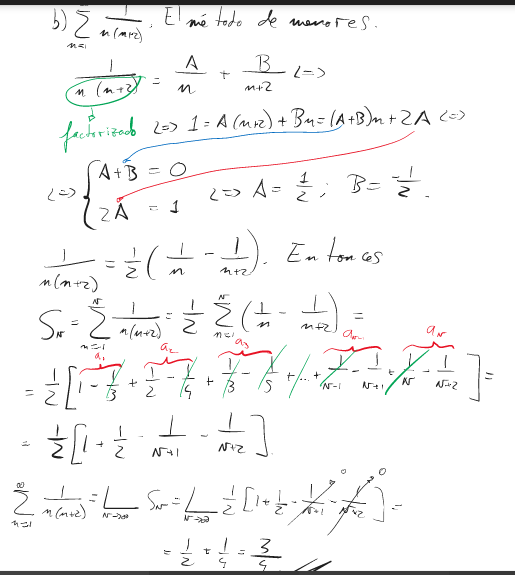 b) ∑_{n=1}^{∞} 1/(n(n+2)). El método de menores.
1/(n(n+2)) = A/n + B/(n+2) <=>
factorizado <=> 1 = A(n+2) + Bn = (A+B)n + 2A <=>
<=> { A+B = 0
2A = 1 <=> A = 1/2 ; B = -1/2.
1/(n(n+2)) = 1/2 (1/n - 1/(n+2)). Entonces
S_N = ∑_{n=1}^{N} 1/(n(n+2)) = 1/2 ∑_{n=1}^{N} (1/n - 1/(n+2)) =
a_1 a_2 a_3 a_{N-1} a_N
= 1/2 [1 - 1/3 + 1/2 - 1/4 + 1/3 - 1/5 + ... + 1/(N-1) - 1/(N+1) + 1/N - 1/(N+2)] =
= 1/2 [1 + 1/2 - 1/(N+1) - 1/(N+2)].
∑_{n=1}^{∞} 1/(n(n+2)) = L_{N→∞} S_N = L_{N→∞} 1/2 [1 + 1/2 - 1/(N+1) - 1/(N+2)] =
0 0
= 1/2 + 1/4 = 3/4